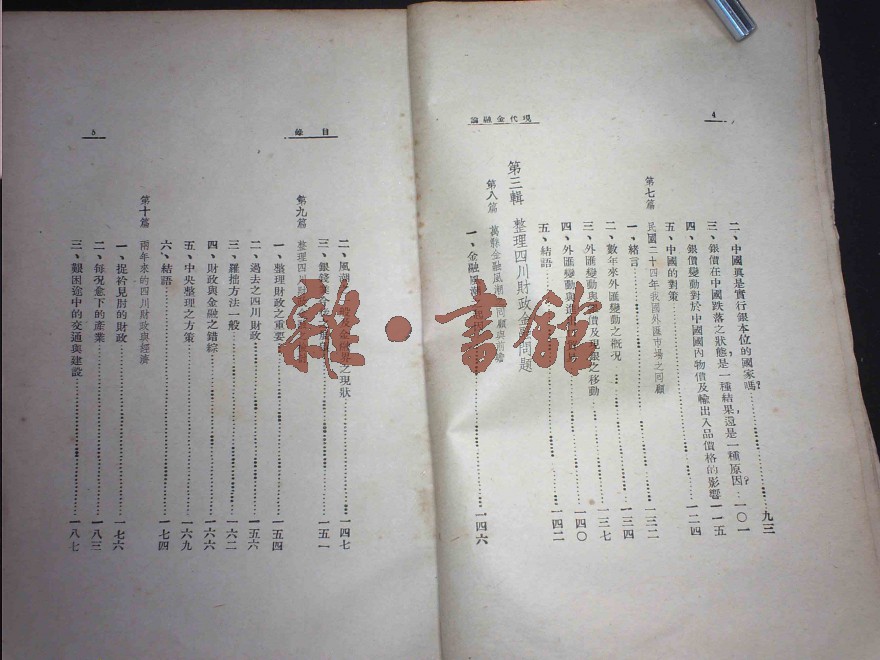 4
現代金融論
二、中國眞是實行銀本位的國家嗎？……九三
三、銀價在中國跌落之狀態，是一種結果，還是一種原因？…一〇一
四、銀價變動對於中國國內物價及輸出入品價格的影響 一一五
五、中國的對策……一二四
第七篇 民國二十四年我國外匯市場之回顧
一、緒言……一三二
二、數年來外匯變動之概況……一三四
三、外匯變動與銀價及現銀之移動……一三七
四、外匯變動與……一四〇
五、結語……一四二
第三輯 整理四川財政金融問題
第八篇 金融風潮 回顧與
一、金融風潮……一四六
目錄
5
二、風潮 金融界之現狀……一四七
三、銀錢……一五一
第九篇 整理四川財政
一、整理財政之重要……一五四
二、過去之四川財政……一五六
三、羅拙方法一般……一六二
四、財政與金融之錯綜……一六六
五、中央整理之方策……一六九
六、結語……一七四
第十篇 兩年來的四川財政與經濟
一、捉衿見肘的財政……一七六
二、每况愈下的產業……一八三
三、艱困途中的交通與建設……一八七
雜·書館